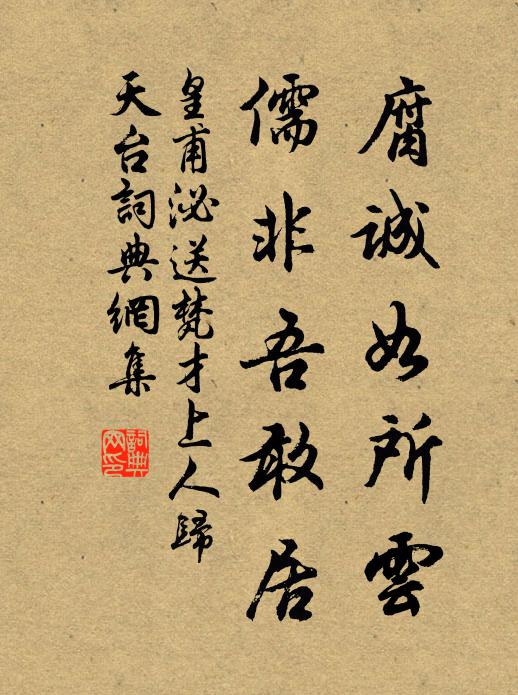 腐誠如所雲
儒非吾敢居
皇甫泌送梵才上人歸
天台詞典網集
詞典網印